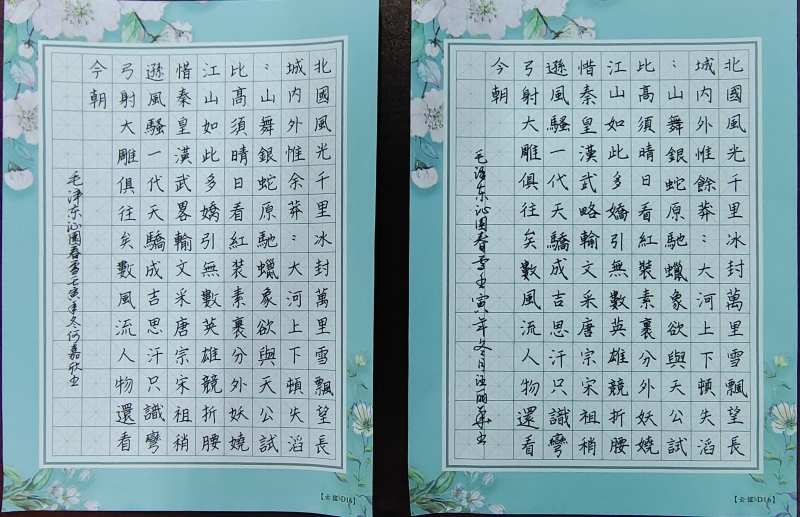 北國風光千里冰封萬里雪飄望長
城内外惟余莽：大河上下頓失滔
：山舞銀蛇原馳蠟象欲與天公試
比高須晴日看紅裝素裹分外妖嬈
江山如此多嬌引無數英雄競折腰
惜秦皇漢武畧輸文采唐宗宋祖稍
遜風騷一代天驕成吉思汗只識彎
弓射大雕俱往矣數風流人物還看
今朝
毛泽东沁園春雪壬寅年冬何嘉欣书
【云谊·D16】
北國風光千里冰封萬里雪飄望長
城内外惟餘莽：大河上下頓失滔
：山舞銀蛇原馳蠟象欲與天公試
比高須晴日看紅裝素裹分外妖嬈
江山如此多嬌引無數英雄競折腰
惜秦皇漢武略輸文采唐宗宋祖稍
遜風騷一代天驕成吉思汗只識彎
弓射大雕俱往矣數風流人物還看
今朝
毛泽东沁园春雪壬寅年冬月汪丽華书
【云谊·D16】